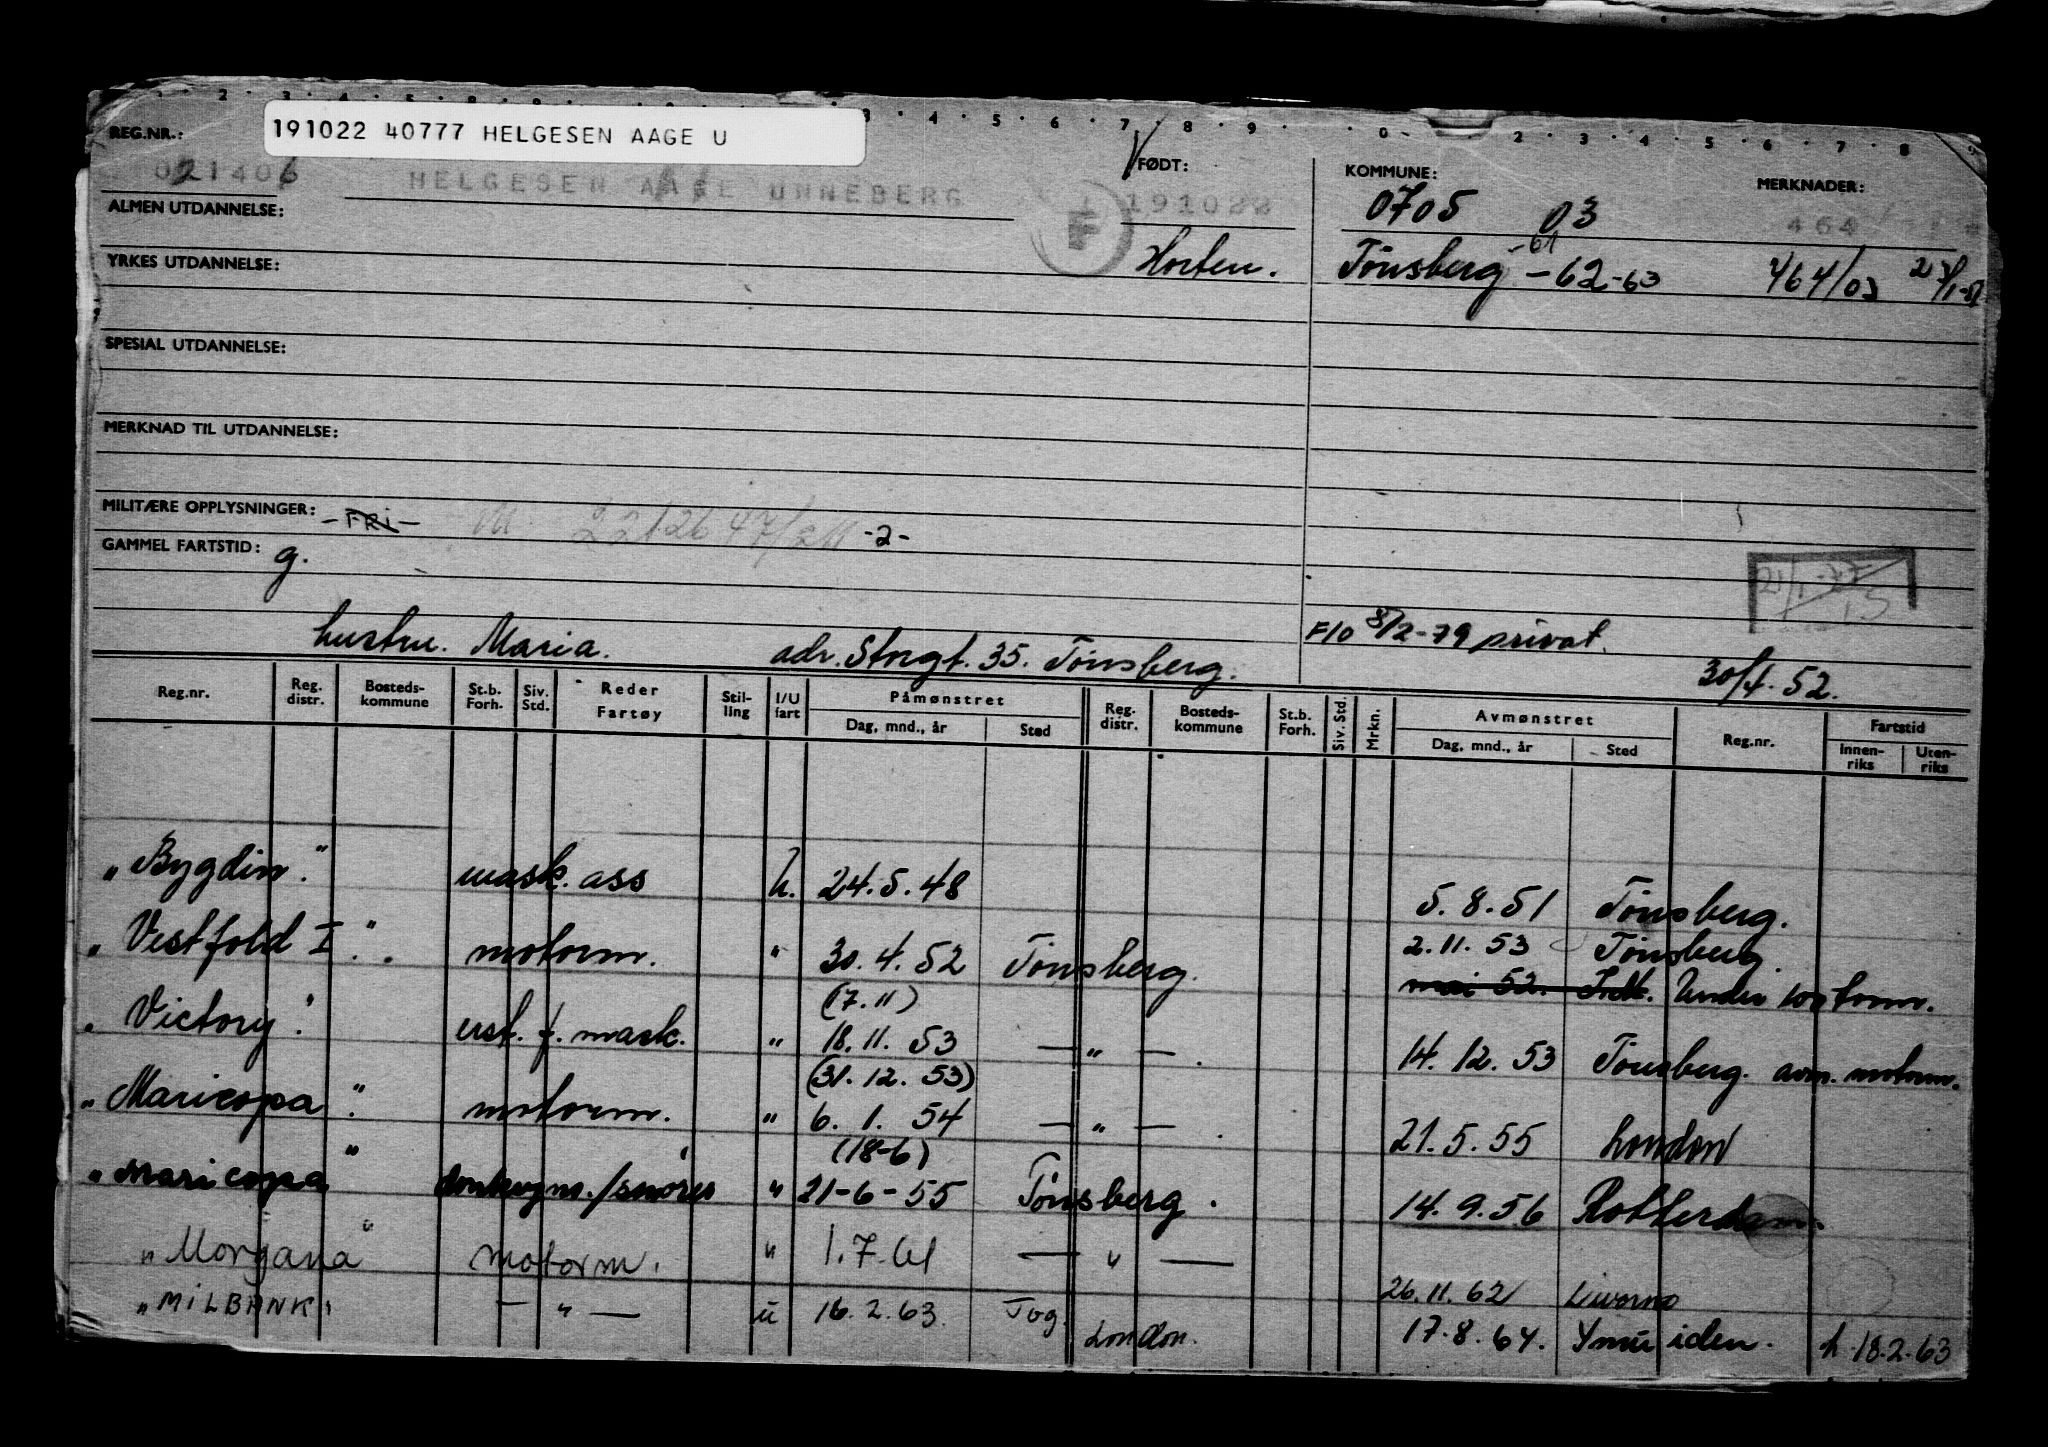 191022 40777 HELGESEN AAGE U
REG.NR.: FØDT: KOMMUNE: MERKNADER:
021406 HELGESEN AAGE UNNEBERG F 191022 0705 03 464
ALMEN UTDANNELSE:
Horten. Tönsberg -61 -62-63 464/03
YRKES UTDANNELSE:
SPESIAL UTDANNELSE:
MERKNAD TIL UTDANNELSE:
MILITÆRE OPPLYSNINGER: -FRI- -2-
GAMMEL FARTSTID: g.
hustru. Maria. adr. Storgt. 35. Tönsberg. F/0 8/2-79 privat.
30/4.52.
Reg.nr. Reg. distr. Bosteds-kommune St.b. Forh. Siv. Std. Reder Fartøy Stil-ling I/U fart Påmønstret Dag, mnd., år Sted Reg. distr. Bosteds-kommune St.b. Forh. Siv. Std. Mrkn. Avmønstret Dag, mnd., år Sted Reg.nr. Fartstid Innen-riks Uten-riks
"Bygdin." mask. ass U. 24.5.48 5.8.51 Tönsberg.
"Vestfold I". motorm. " 30.4.52 Tönsberg. 2.11.53 Tönsberg.
(7.11) mai 52. Under som torm.
"Victory." ust. f. mask. " 18.11.53 — " — . 14.12.53 Tönsberg. avm. motorm.
(31.12.53)
"Maricopa". motorm. " 6.1.54 — " — . 21.5.55 London
(18-6)
"Maricopa" donkeym./smörer " 21-6-55 Tönsberg. 14.9.56 Rotterdam.
"Morgana" motorm. " 1.7.61 — " — 26.11.62 Livorno
"MILBANK" — " — u 16.2.63. Tbg. London. 17.8.64. Ymuiden. h. 18.2.63